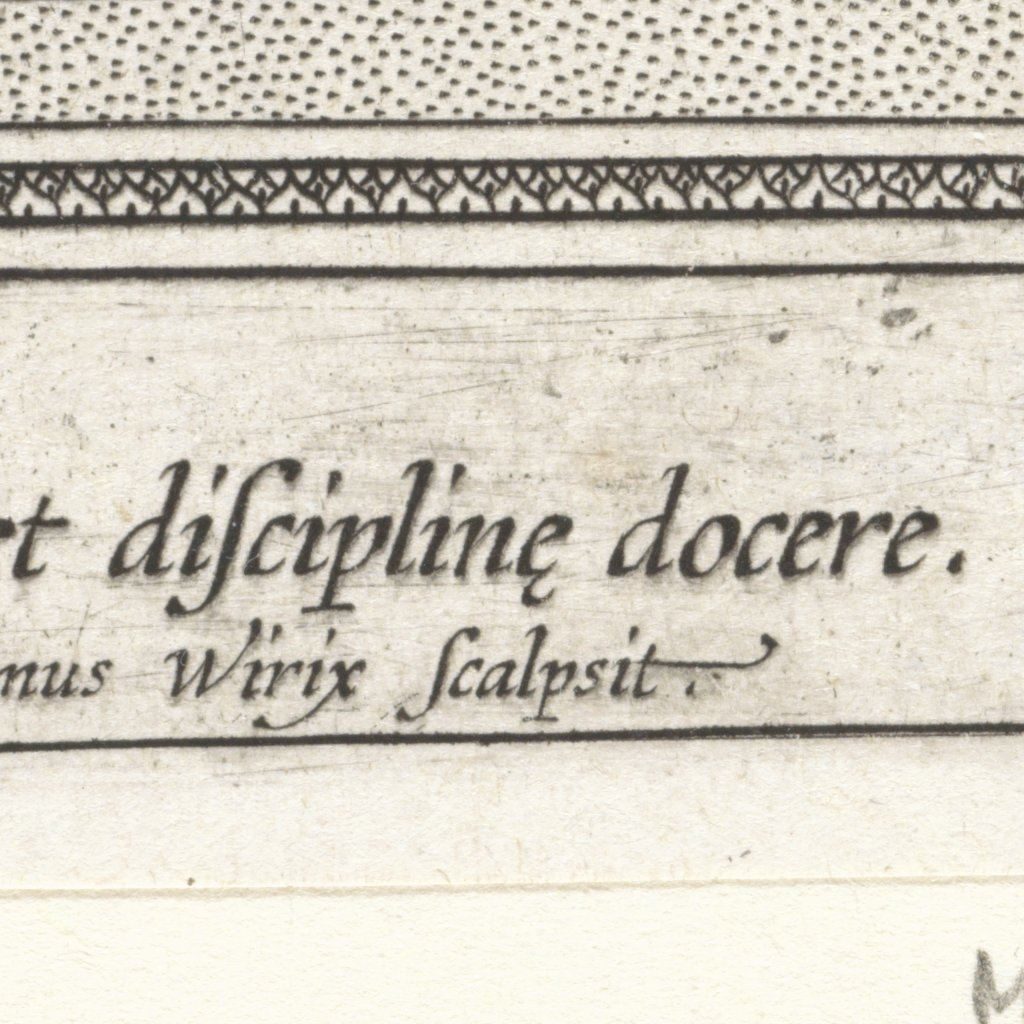 rt diſciplinę docere.
nus Wirix ſcalpsit.
M